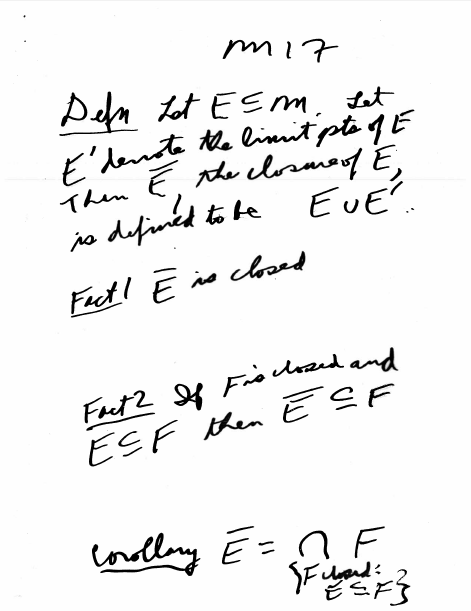 m17
Defn Let E ⊆ m. Let
E' denote the limit pts of E
Then E̅, the closure of E,
is defined to be E ∪ E'.
Fact 1 E̅ is closed
Fact 2 If F is closed and
E ⊆ F then E̅ ⊆ F
Corollary E̅ = ∩ F
{F closed:
E ⊆ F}